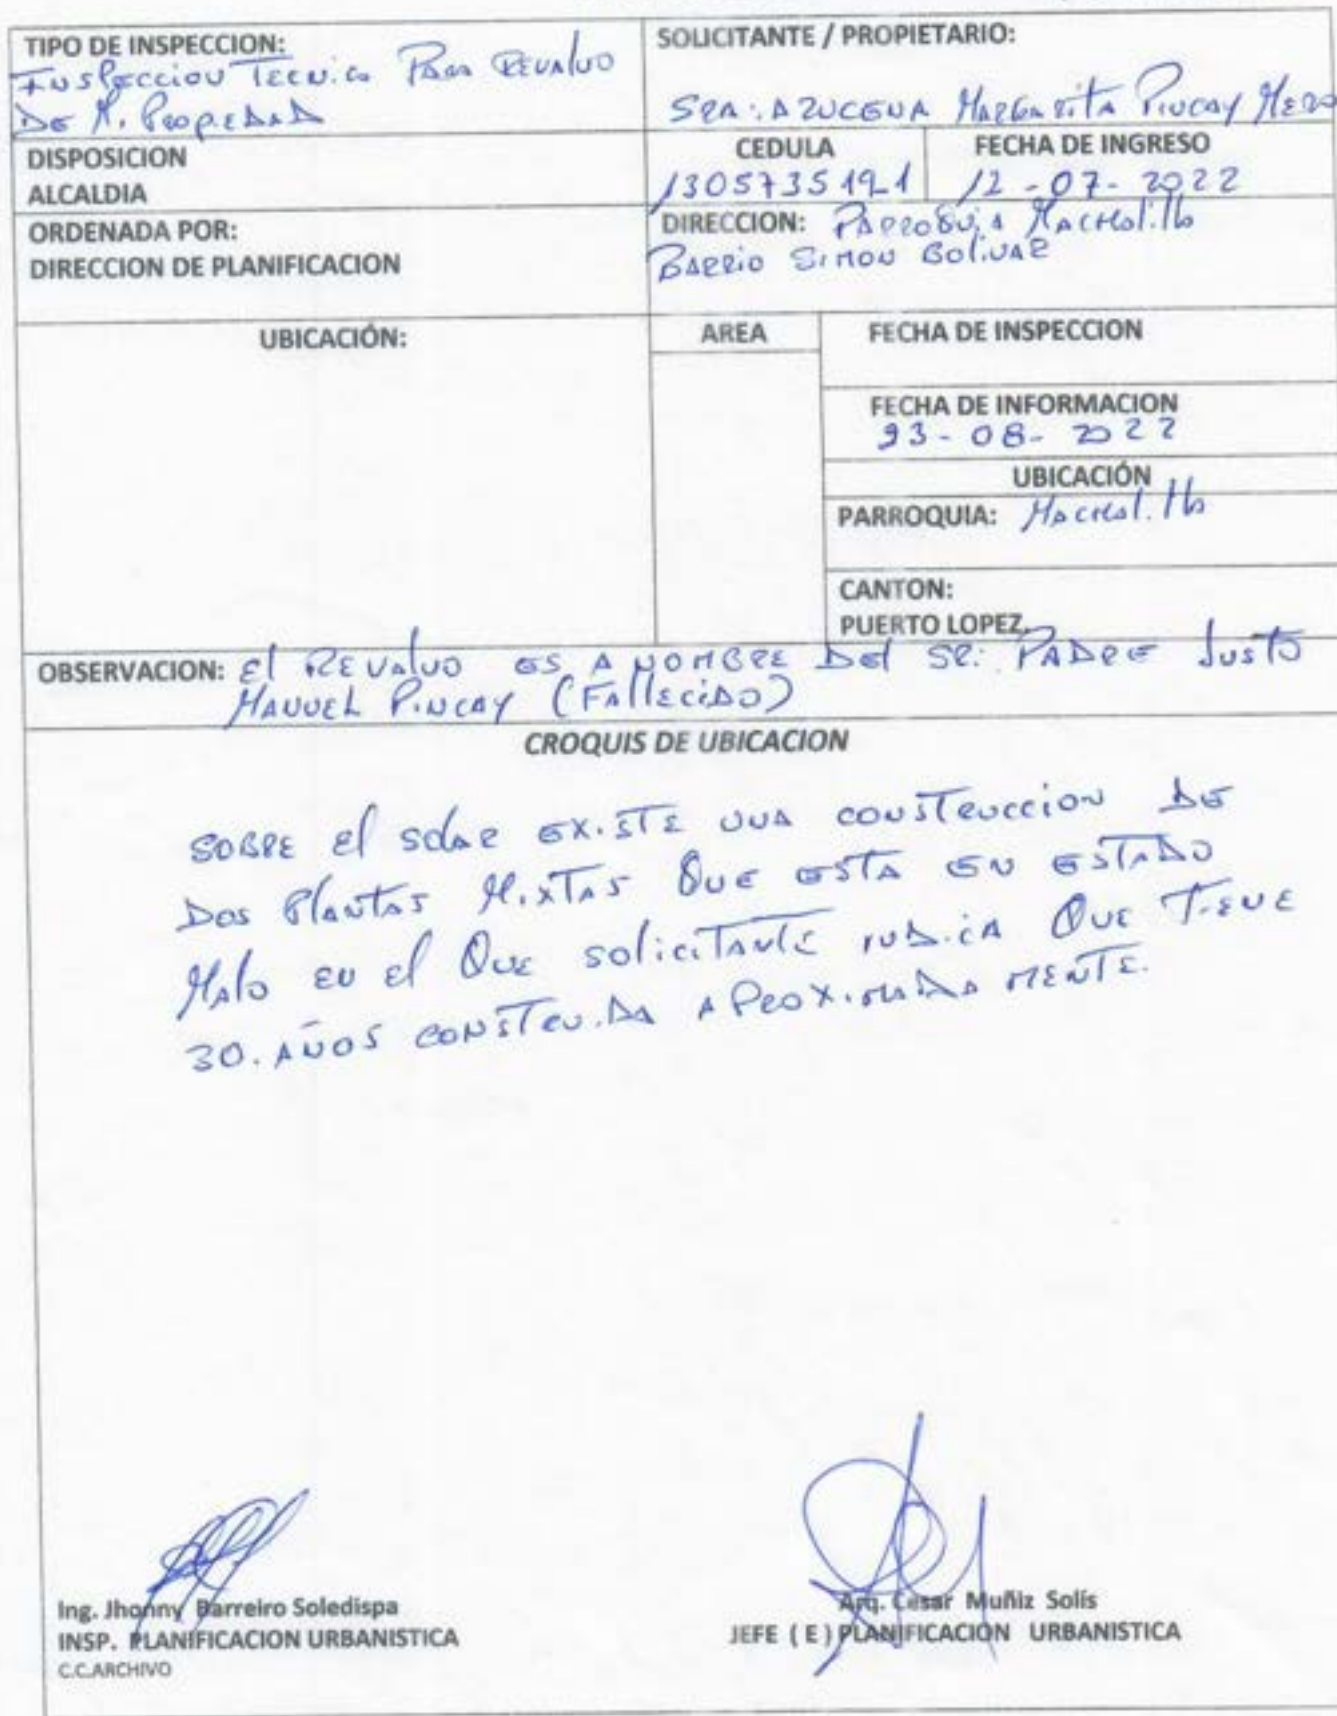 TIPO DE INSPECCION:
Inspeccion Tecnico Para Revaluo
De M. Propiedad
SOLICITANTE / PROPIETARIO:
SRA: AZUCENA MARGARITA PINCAY MERO
DISPOSICION
ALCALDIA
CEDULA
130573519-1
FECHA DE INGRESO
12-07-2022
ORDENADA POR:
DIRECCION DE PLANIFICACION
DIRECCION: PARROQUIA MACHALILLA
BARRIO SIMON BOLIVAR
UBICACIÓN:
AREA
FECHA DE INSPECCION
FECHA DE INFORMACION
23-08-2022
UBICACIÓN
PARROQUIA: Machalilla
CANTON:
PUERTO LOPEZ
OBSERVACION: El REVALUO ES A NOMBRE DEL SR: PADRE JUSTO
MANUEL PINCAY (FALLECIDO)
CROQUIS DE UBICACION
SOBRE El SOLAR EXISTE UNA CONSTRUCCION DE
DOS PLANTAS MIXTAS QUE ESTA EN ESTADO
MALO EN El QUE SOLICITANTE INDICA QUE TIENE
30. AÑOS CONSTRUIDA APROXIMADAMENTE.
Ing. Jhonny Barreiro Soledispa
INSP. PLANIFICACION URBANISTICA
C.C.ARCHIVO
Arq. Cesar Muñiz Solís
JEFE ( E ) PLANIFICACION URBANISTICA